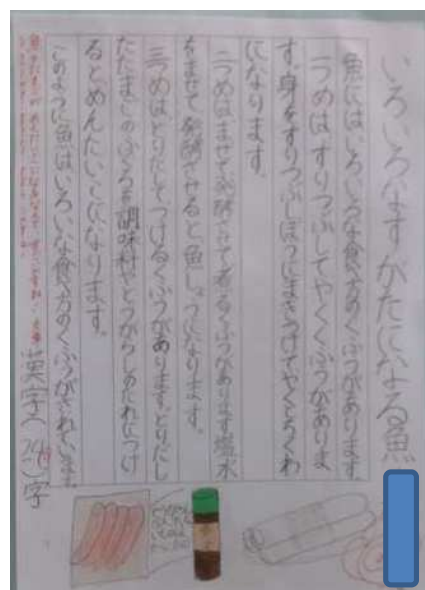 いろいろなすがたになる魚
魚にはいろいろな食べ方のくふうがあります。
一つめはすりつぶしてやくくふうがありま
す。身をすりつぶしぼうにまきつけてやくとちくわ
になります。
二つめはまぜて発酵させて煮るくふうがあります塩水
をまぜて発酵させると魚しょうになります。
三つめはとりだしてつけるくふうがあります。とりだし
たたまごのふくろを調味料やとうがらしのたれにつけ
るとめんたいこになります。
このように魚はいろいな食べ方のくふうがされています。
漢字(24こ)字